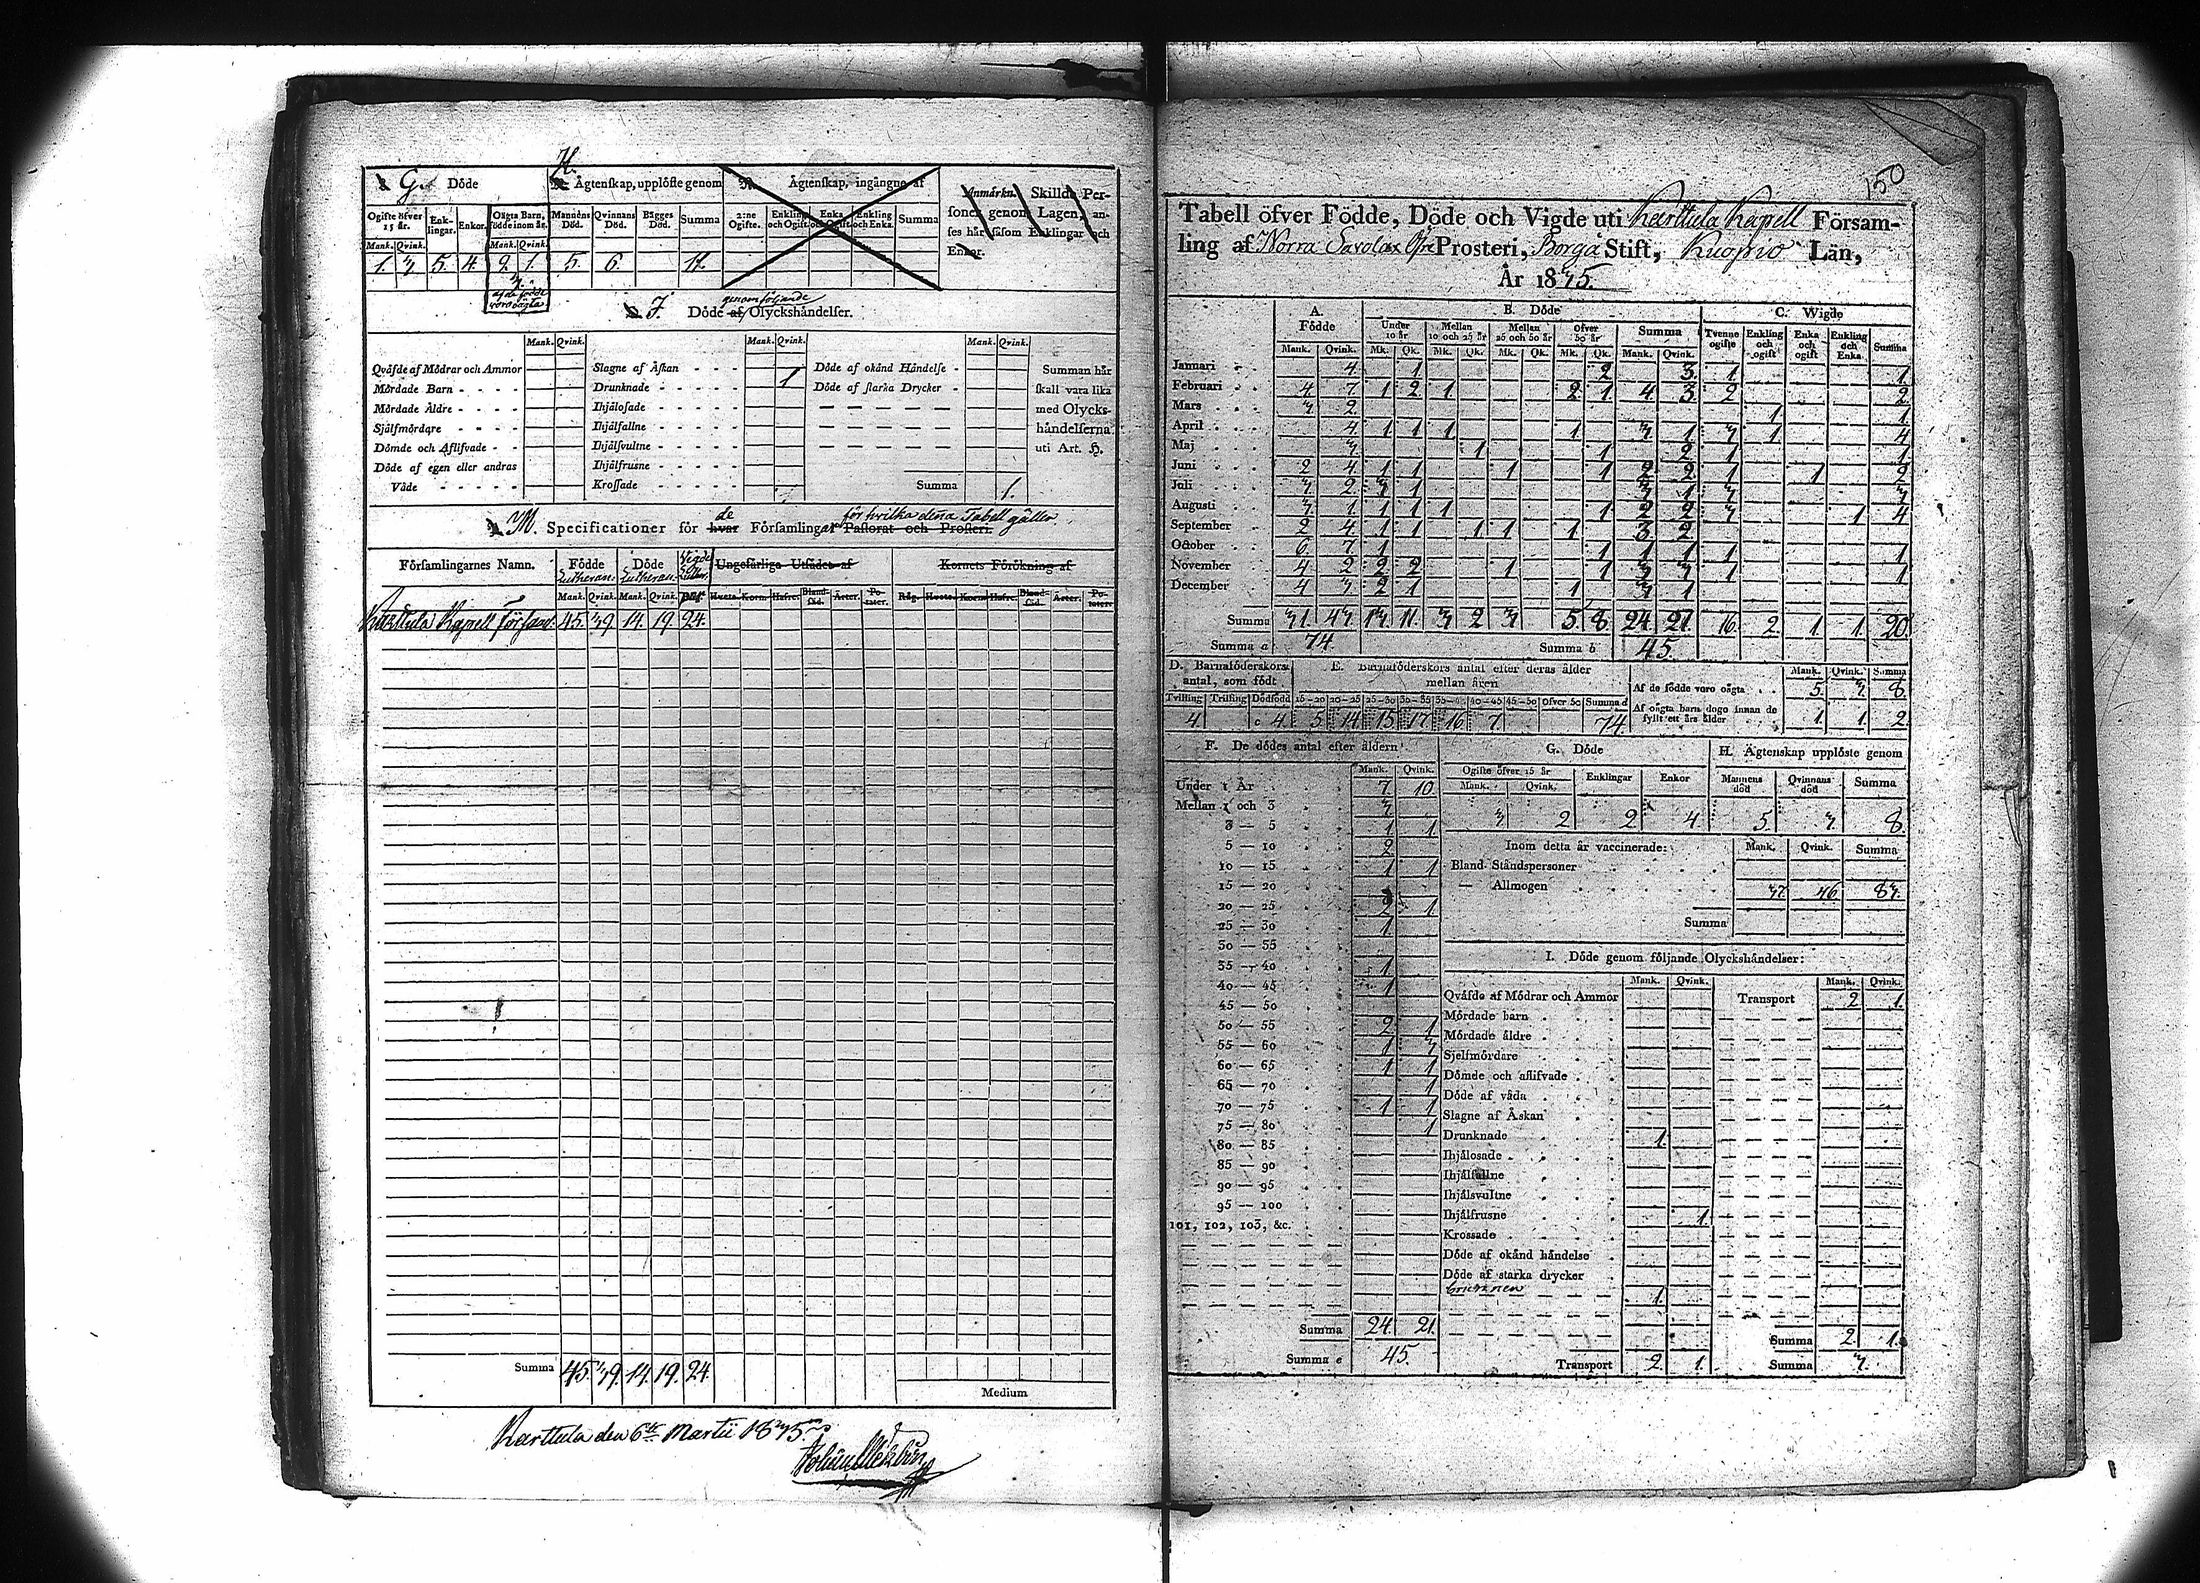 G. Döde
H. Ägtenskap, upplöste genom
Ägtenskap, ingångne af
Anmärkn. Skillde Per-
soner genom Lagen, an-
ses här såsom Enklingar och
Enkor.
Ogifte öfver 15 år. Enk-lingar. Enkor. Oägta Barn, födde inom år. Mannens Död. Qvinnans Död. Bägges Död. Summa 2:ne Ogifte. Enkling och Ogift. Enka och Ogift. Enkling och Enka. Summa
Mank. Qvink. Mank. Qvink.
1. 3. 5. 4. 2. 1. 5. 6. 11.
3.
af de födde
voro oägta
J. Döde af genom följande Olyckshändelser.
Mank. Qvink. Mank. Qvink. Mank. Qvink.
Qväfde af Mödrar och Ammor Slagne af Åskan Döde af okänd Händelse Summan här
Mördade Barn Drunknade 1 Döde af starka Drycker skall vara lika
Mördade Äldre Ihjälosade med Olycks-
Själfmördare Ihjälfallne händelserna
Dömde och Aflifvade Ihjälsvultne uti Art. H.
Döde af egen eller andras Ihjälfrusne
Våde Krossade Summa 1.
M. Specificationer för hvar de Församlingar Pastorat och Prosteri. för hvilka dena Tabel gäller
Församlingarnes Namn. Födde Lutheran. Döde Lutheran. Vigde Ungefärliga Utsädet af Kornets Förökning af
Mank. Qvink. Mank. Qvink. Par. Hvete. Korn. Hafre. Bland-säd. Ärter. Po-tater. Råg. Hvete. Korn. Hafre. Bland-säd. Ärter. Po-tater.
Karttula Kapell Församl: 45. 39. 14. 19. 24.
Summa 45. 39. 14. 19. 24.
Medium
Karttula den 6te Martii 1835.
150
Tabell öfver Födde, Döde och Vigde uti Karttula Kapell Försam-
ling af Norra Savolax Öfre Prosteri, Borgå Stift, Kuopio Län,
År 1835.
A. Födde B. Döde C. Wigde
Under 10 år Mellan 10 och 25 år Mellan 25 och 50 år Öfver 50 år Summa Tvenne ogifte Enkling och ogift Enka och ogift Enkling och Enka Summa
Mank. Qvink. Mk. Qk. Mk. Qk. Mk. Qk. Mk. Qk. Mank. Qvink.
Januari 4 1 2 3 1 1
Februari 4 7 1 2 1 2 1 4 3 2 2
Mars 3 2 1 1
April 4 1 1 1 1 3 1 3 1 4
Maj 3 1 1 2 1 1
Juni 2 4 1 1 1 1 2 2 1 1 2
Juli 3 2 3 1 3 1 3 3
Augusti 3 1 1 1 1 1 2 2 3 1 4
September 2 4 1 1 1 1 1 3 2
October 6 7 1 1 1 1 1 1
November 4 2 2 2 1 1 3 3 1 1
December 4 3 2 1 1 3 1
Summa 31. 43. 13. 11. 3 2 3 5. 8. 24. 21. 16. 2. 1. 1. 20.
Summa a 74. Summa b 45.
D. Barnaföderskors antal, som födt E. Barnaföderskors antal efter deras ålder mellan åren
Mank. Qvink. Summa
Tvilling Trilling Dödfödd 15—20 20—25 25—30 30—35 35—40 40—45 45—50 Öfver 50 Summa d
4 c 4. 5 14 15 17 16 7 74.
Af de födde voro oägta 5. 3. 8.
Af oägta barn dogo innan de
fyllt ett års ålder 1. 1. 2.
F. De dödes antal efter åldern
Mank. Qvink.
Under 1 År 7 10
Mellan 1 och 3 3
3 — 5 1 1
5 — 10 2
10 — 15 1 1
15 — 20
20 — 25 2 1
25 — 30 1
30 — 35
35 — 40 1
40 — 45 1
45 — 50
50 — 55 2 1
55 — 60 1 3
60 — 65 1 1
65 — 70 1
70 — 75 1 1
75 — 80 1
80 — 85
85 — 90
90 — 95
95 — 100
101, 102, 103, &c.
Summa 24. 21.
Summa e 45.
G. Döde
Ogifte öfver 15 år Enklingar Enkor
Mank. Qvink.
3 2 2 4
H. Ägtenskap upplöste genom
Mannens död Qvinnans död Summa
5. 3. 8.
Inom detta år vaccinerade: Mank. Qvink. Summa
Bland Ståndspersoner
— Allmogen 37. 46. 83.
Summa
I. Döde genom följande Olyckshändelser:
Mank. Qvink. Mank. Qvink.
Qväfde af Mödrar och Ammor Transport 2 1.
Mördade barn
Mördade äldre
Sjelfmördare
Dömde och aflifvade
Döde af våda
Slagne af Åskan
Drunknade 1.
Ihjälosade
Ihjälfallne
Ihjälsvultne
Ihjälfrusne 1.
Krossade
Döde af okänd händelse
Döde af starka drycker
1.
Summa 2. 1.
Transport 2. 1. Summa 3.